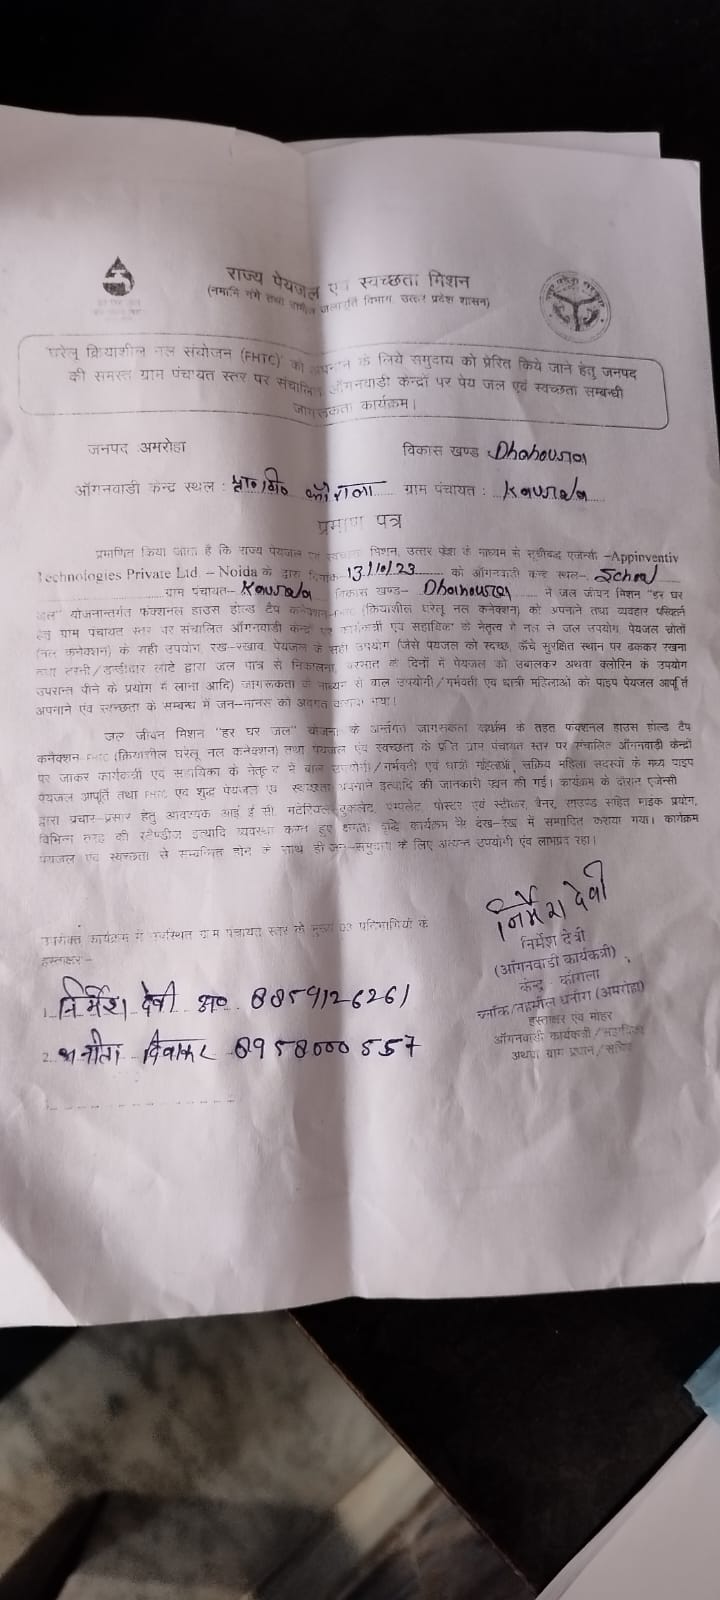 राज्य पेयजल एवं स्वच्छता मिशन
(नमामि गंगे तथा ग्रामीण जलापूर्ति विभाग, उत्तर प्रदेश शासन)
'घरेलू क्रियाशील नल संयोजन (FHTC)' को अपनाने के लिये समुदाय को प्रेरित किये जाने हेतु जनपद
की समस्त ग्राम पंचायत स्तर पर संचालित आँगनवाडी केन्द्रों पर पेय जल एवं स्वच्छता सम्बन्धी
जागरूकता कार्यक्रम।
जनपद अमरोहा विकास खण्ड Dhanoura
आँगनवाडी केन्द्र स्थल : प्रा० वि० कौराला ग्राम पंचायत : Kaurala
प्रमाण पत्र
प्रमाणित किया जाता है कि राज्य पेयजल एवं स्वच्छता मिशन, उत्तर प्रदेश के माध्यम से सूचीबद्ध एजेन्सी -Appinventiv
Technologies Private Ltd – Noida के द्वारा दिनांक- 13/10/23 को आँगनवाडी केन्द्र स्थल- School
ग्राम पंचायत- Kaurala विकास खण्ड- Dhanoura ने जल जीवन मिशन "हर घर
जल" योजनान्तर्गत फंक्शनल हाउस होल्ड टैप कनेक्शन-FHTC (क्रियाशील घरेलू नल कनेक्शन) को अपनाने तथा व्यवहार परिवर्तन
हेतु ग्राम पंचायत स्तर पर संचालित आँगनवाडी केन्द्रों पर कार्यकर्त्री एवं सहायिका के नेतृत्व में नल से जल उपयोग, पेयजल स्रोतों
(नल कनेक्शन) के सही उपयोग, रख-रखाव, पेयजल के सही उपयोग (जैसे पेयजल को स्वच्छ, ऊँचे सुरक्षित स्थान पर ढककर रखना
तथा टोंटी/डण्डीदार लोटे द्वारा जल पात्र से निकालना, बरसात के दिनों में पेयजल को उबालकर अथवा क्लोरिन के उपयोग
उपरान्त पीने के प्रयोग में लाना आदि) जागरूकता के माध्यम से बाल उपयोगी/गर्भवती एवं धात्री महिलाओं को पाइप पेयजल आपूर्ति
अपनाने एंव स्वच्छता के सम्बन्ध में जन-मानस को अवगत कराया गया।
जल जीवन मिशन "हर घर जल" योजना के अर्न्तगत जागरूकता कार्यक्रम के तहत फंक्शनल हाउस होल्ड टैप
कनेक्शन-FHTC (क्रियाशील घरेलू नल कनेक्शन) तथा पेयजल एवं स्वच्छता के प्रति ग्राम पंचायत स्तर पर संचालित आँगनवाडी केन्द्रों
पर जाकर कार्यकर्त्री एवं सहायिका के नेतृत्व में बाल उपयोगी/गर्भवती एवं धात्री महिलाओं, सक्रिय महिला सदस्यों के मध्य पाइप
पेयजल आपूर्ति तथा FHTC एवं शुद्ध पेयजल एवं स्वच्छता अपनाने इत्यादि की जानकारी प्रदान की गई। कार्यक्रम के दौरान एजेन्सी
द्वारा प्रचार-प्रसार हेतु आवश्यक आई ई सी. मटेरियल बुकलेट, पम्पलेट, पोस्टर एवं स्टीकर, बैनर, साउण्ड सहित माइक प्रयोग,
विभिन्न तरह की स्टैण्डीज इत्यादि व्यवस्था करते हुए क्षमता वृद्धि कार्यक्रम मेरे देख-रेख में सम्पादित कराया गया। कार्यक्रम
पेयजल एवं स्वच्छता से सम्बन्धित होने के साथ ही जन-समुदाय के लिए अत्यन्त उपयोगी एंव लाभप्रद रहा।
निर्मेश देवी
निर्मेश देवी
(आँगनवाडी कार्यकत्री)
केन्द्र
ब्लॉक/तहसील धनौरा (अमरोहा)
हस्ताक्षर एवं मोहर
आँगनवाडी कार्यकत्री/सहायिका
अथवा ग्राम प्रधान/सचिव
उपरोक्त कार्यक्रम में उपस्थित ग्राम पंचायत स्तर के मुख्य 03 प्रतिभागियों के
हस्ताक्षर:-
1. निर्मेश देवी 8859126261
2. अनीता दिवाकर 8958000557